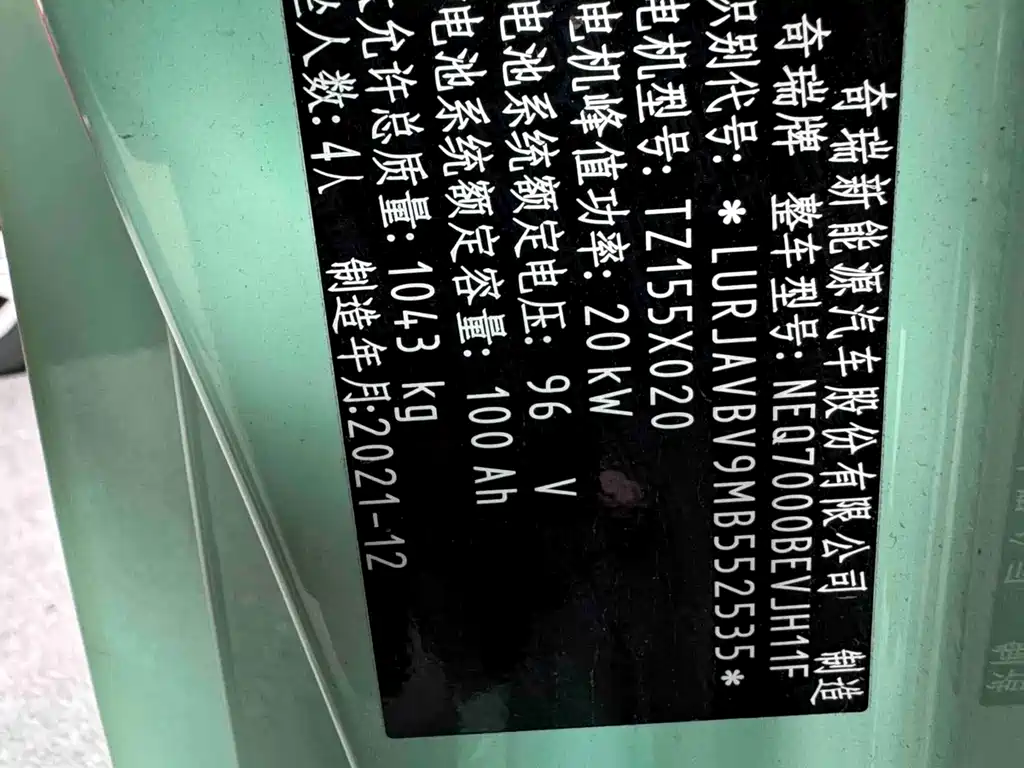 奇瑞新能源汽车股份有限公司 制造
奇瑞牌 整车型号: NEQ7000BEVJH1F
识别代号: *LURJAVBV9MB552535*
电机型号: TZ155X020
电机峰值功率: 20kW
电池系统额定电压: 96 V
电池系统额定容量: 100 Ah
大允许总质量: 1043 kg
坐人数: 4人 制造年月:2021-12